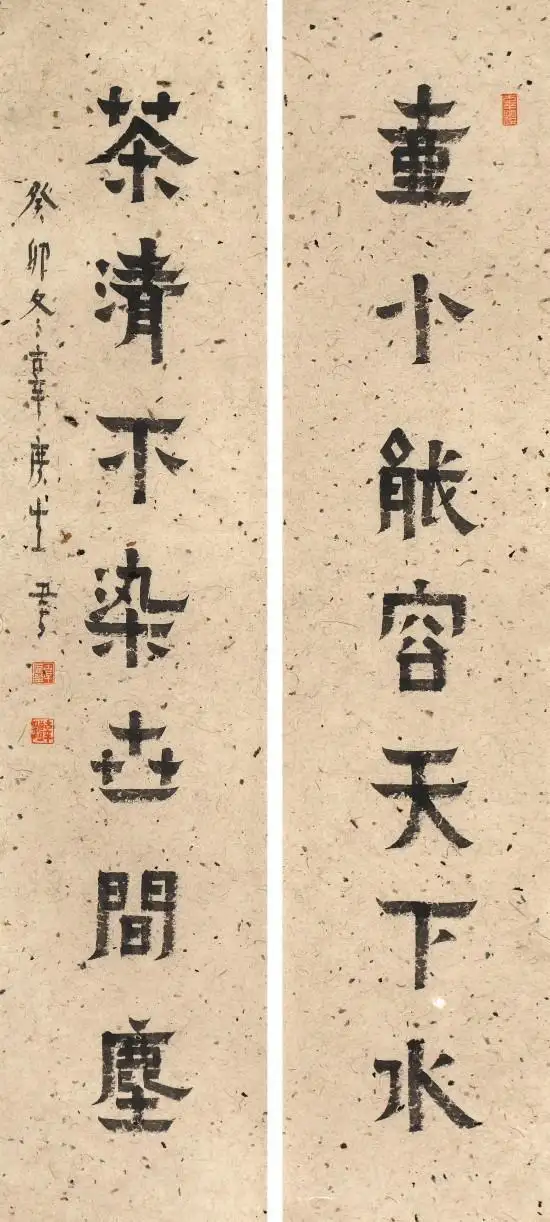 壷小能容天下水
茶清不染世間塵
癸卯冬庚生書